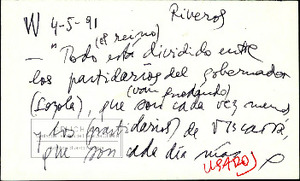 W 4-5-91 Riveros
(el reino)
- "Todo está dividido entre
los partidarios del gobernador
(van quedando)
(Loyola), que son cada vez menos
y los (partidarios) de Viscarra,
que son cada día más
USADO